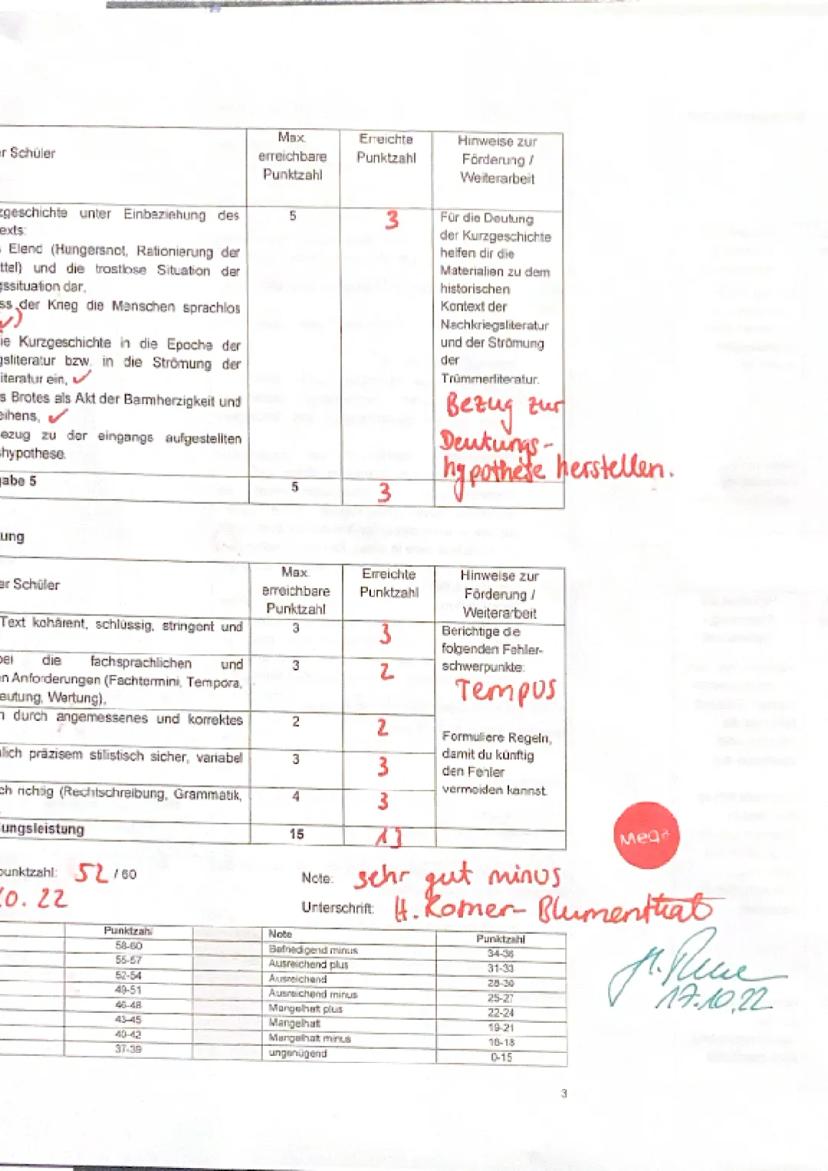 r Schüler
Max.
erreichbare
Punktzahl
Erreichte
Punktzahl
Hinweise zur
Förderung /
Weiterarbeit
zgeschichte unter Einbeziehung des
exts:
Elend (Hungersnot, Rationierung der
ttel) und die trostlose Situation der
gssituation dar,
ss der Krieg die Menschen sprachlos
ie Kurzgeschichte in die Epoche der
gsliteratur bzw. in die Strömung der
iteratur ein,
s Brotes als Akt der Barmherzigkeit und
eihens,
ezug zu der eingangs aufgestellten
hypothese.
5
3
Für die Deutung
der Kurzgeschichte
helfen dir die
Materialien zu dem
historischen
Kontext der
Nachkriegsliteratur
und der Strömung
der
Trümmerliteratur.
Bezug zur
Deutungs-
hypothese herstellen.
abe 5
5
3
ung
er Schüler
Max.
erreichbare
Punktzahl
Erreichte
Punktzahl
Hinweise zur
Förderung /
Weiterarbeit
Text kohärent, schlüssig, stringent und
3
3
Berichtige die
folgenden Fehler-
schwerpunkte:
Tempus
bei die fachsprachlichen und
n Anforderungen (Fachtermini, Tempora,
eutung, Wertung),
3
2
n durch angemessenes und korrektes
2
2
Formuliere Regeln,
damit du künftig
den Fehler
vermeiden kannst.
lich präzisem stilistisch sicher, variabel
3
3
ch richtig (Rechtschreibung, Grammatik,
4
3
ungsleistung
15
13
Mega
punktzahl: 52 / 60
Note: sehr gut minus
0. 22
Unterschrift: H. Komer-Blumenthal
Punktzahl
Note
Punktzahl
58-60
Befriedigend minus
34-36
55-57
Ausreichend plus
31-33
52-54
Ausreichend
28-30
49-51
Ausreichend minus
25-27
46-48
Mangelhaft plus
22-24
43-45
Mangelhaft
19-21
40-42
Mangelhaft minus
16-18
37-39
ungenügend
0-15
17.10.22
3